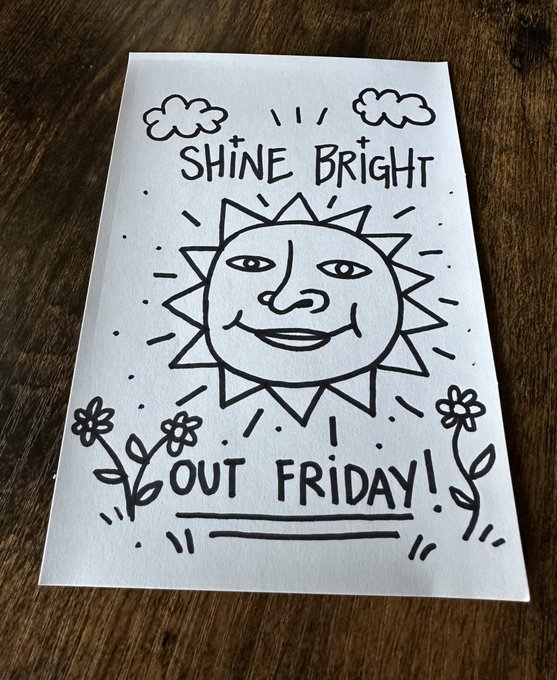 SHINE BRIGHT
OUT FRIDAY!